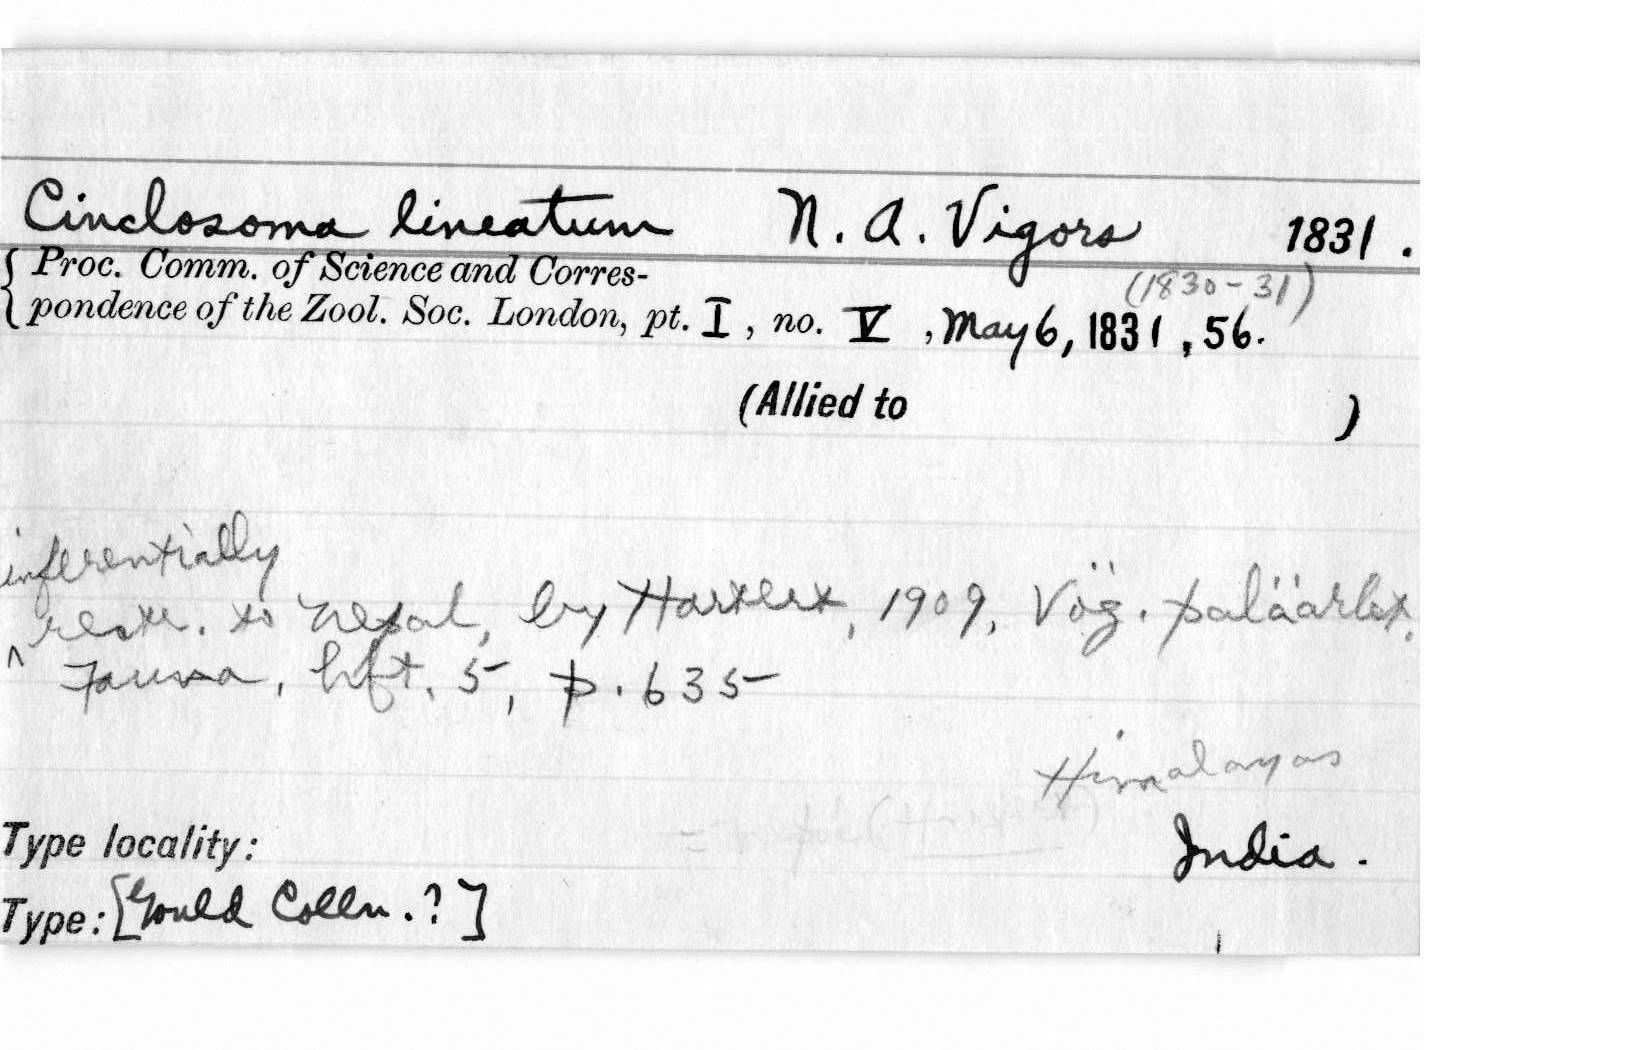 Cinclosoma lineatum N. A. Vigors 1831.
Proc. Comm. of Science and Corres-
(1830-31)
pondence of the Zool. Soc. London, pt. I, no. V, May 6, 1831, 56.
(Allied to )
inferentially
^ restr. to Nepal, by Hartert, 1909, Vög. paläarkt.
Fauna, hft. 5, p. 635
Himalayas
Type locality: India.
Type: [Gould Colln. ?]